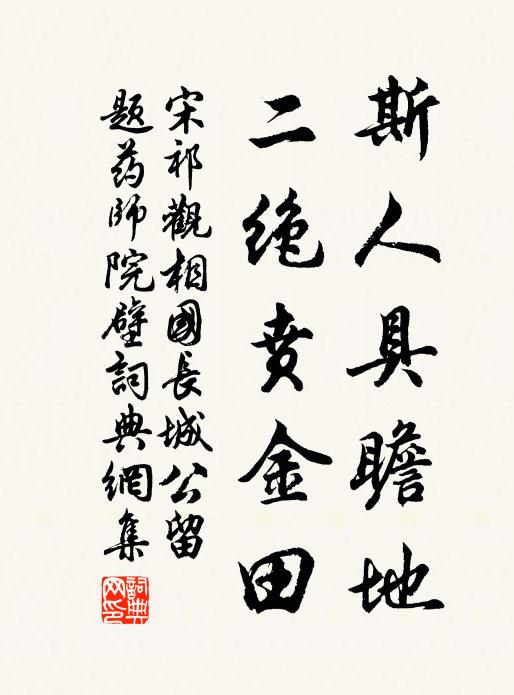 斯人具瞻地
二绝贲金田
宋祁觀相國長城公留
題药師院壁詞典網集
詞典网印